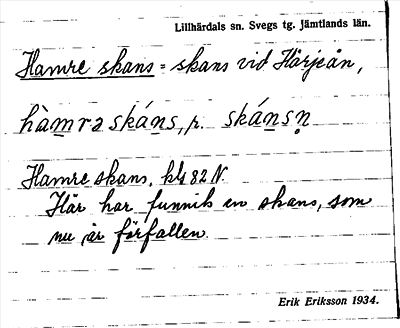 Lillhärdals sn. Svegs tg. Jämtlands län.
Hamre skans = skans vid Härjeån,
hàmrəskáns, p. skánsn̥
Hamre skans. kbl 82 N.
Här har funnits en skans, som
nu är förfallen.
Erik Eriksson 1934.